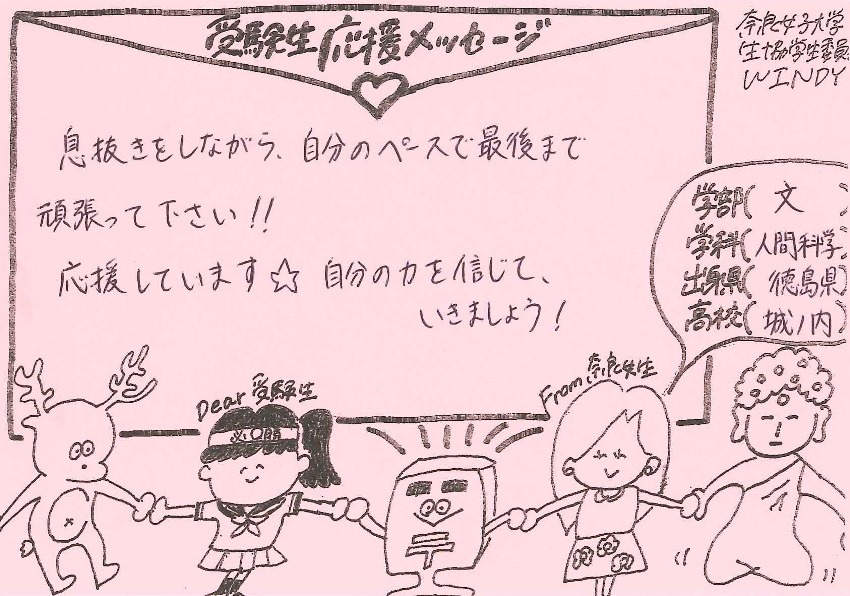 受験生応援メッセージ
奈良女子大学
生協学生委員
WINDY
息抜きをしながら、自分のペースで最後まで
頑張って下さい!!
応援しています☆ 自分の力を信じて、
いきましょう!
学部( 文 )
学科(人間科学)
出身県( 徳島県)
高校( 城ノ内 )
Dear 受験生
From 奈良女生
〒